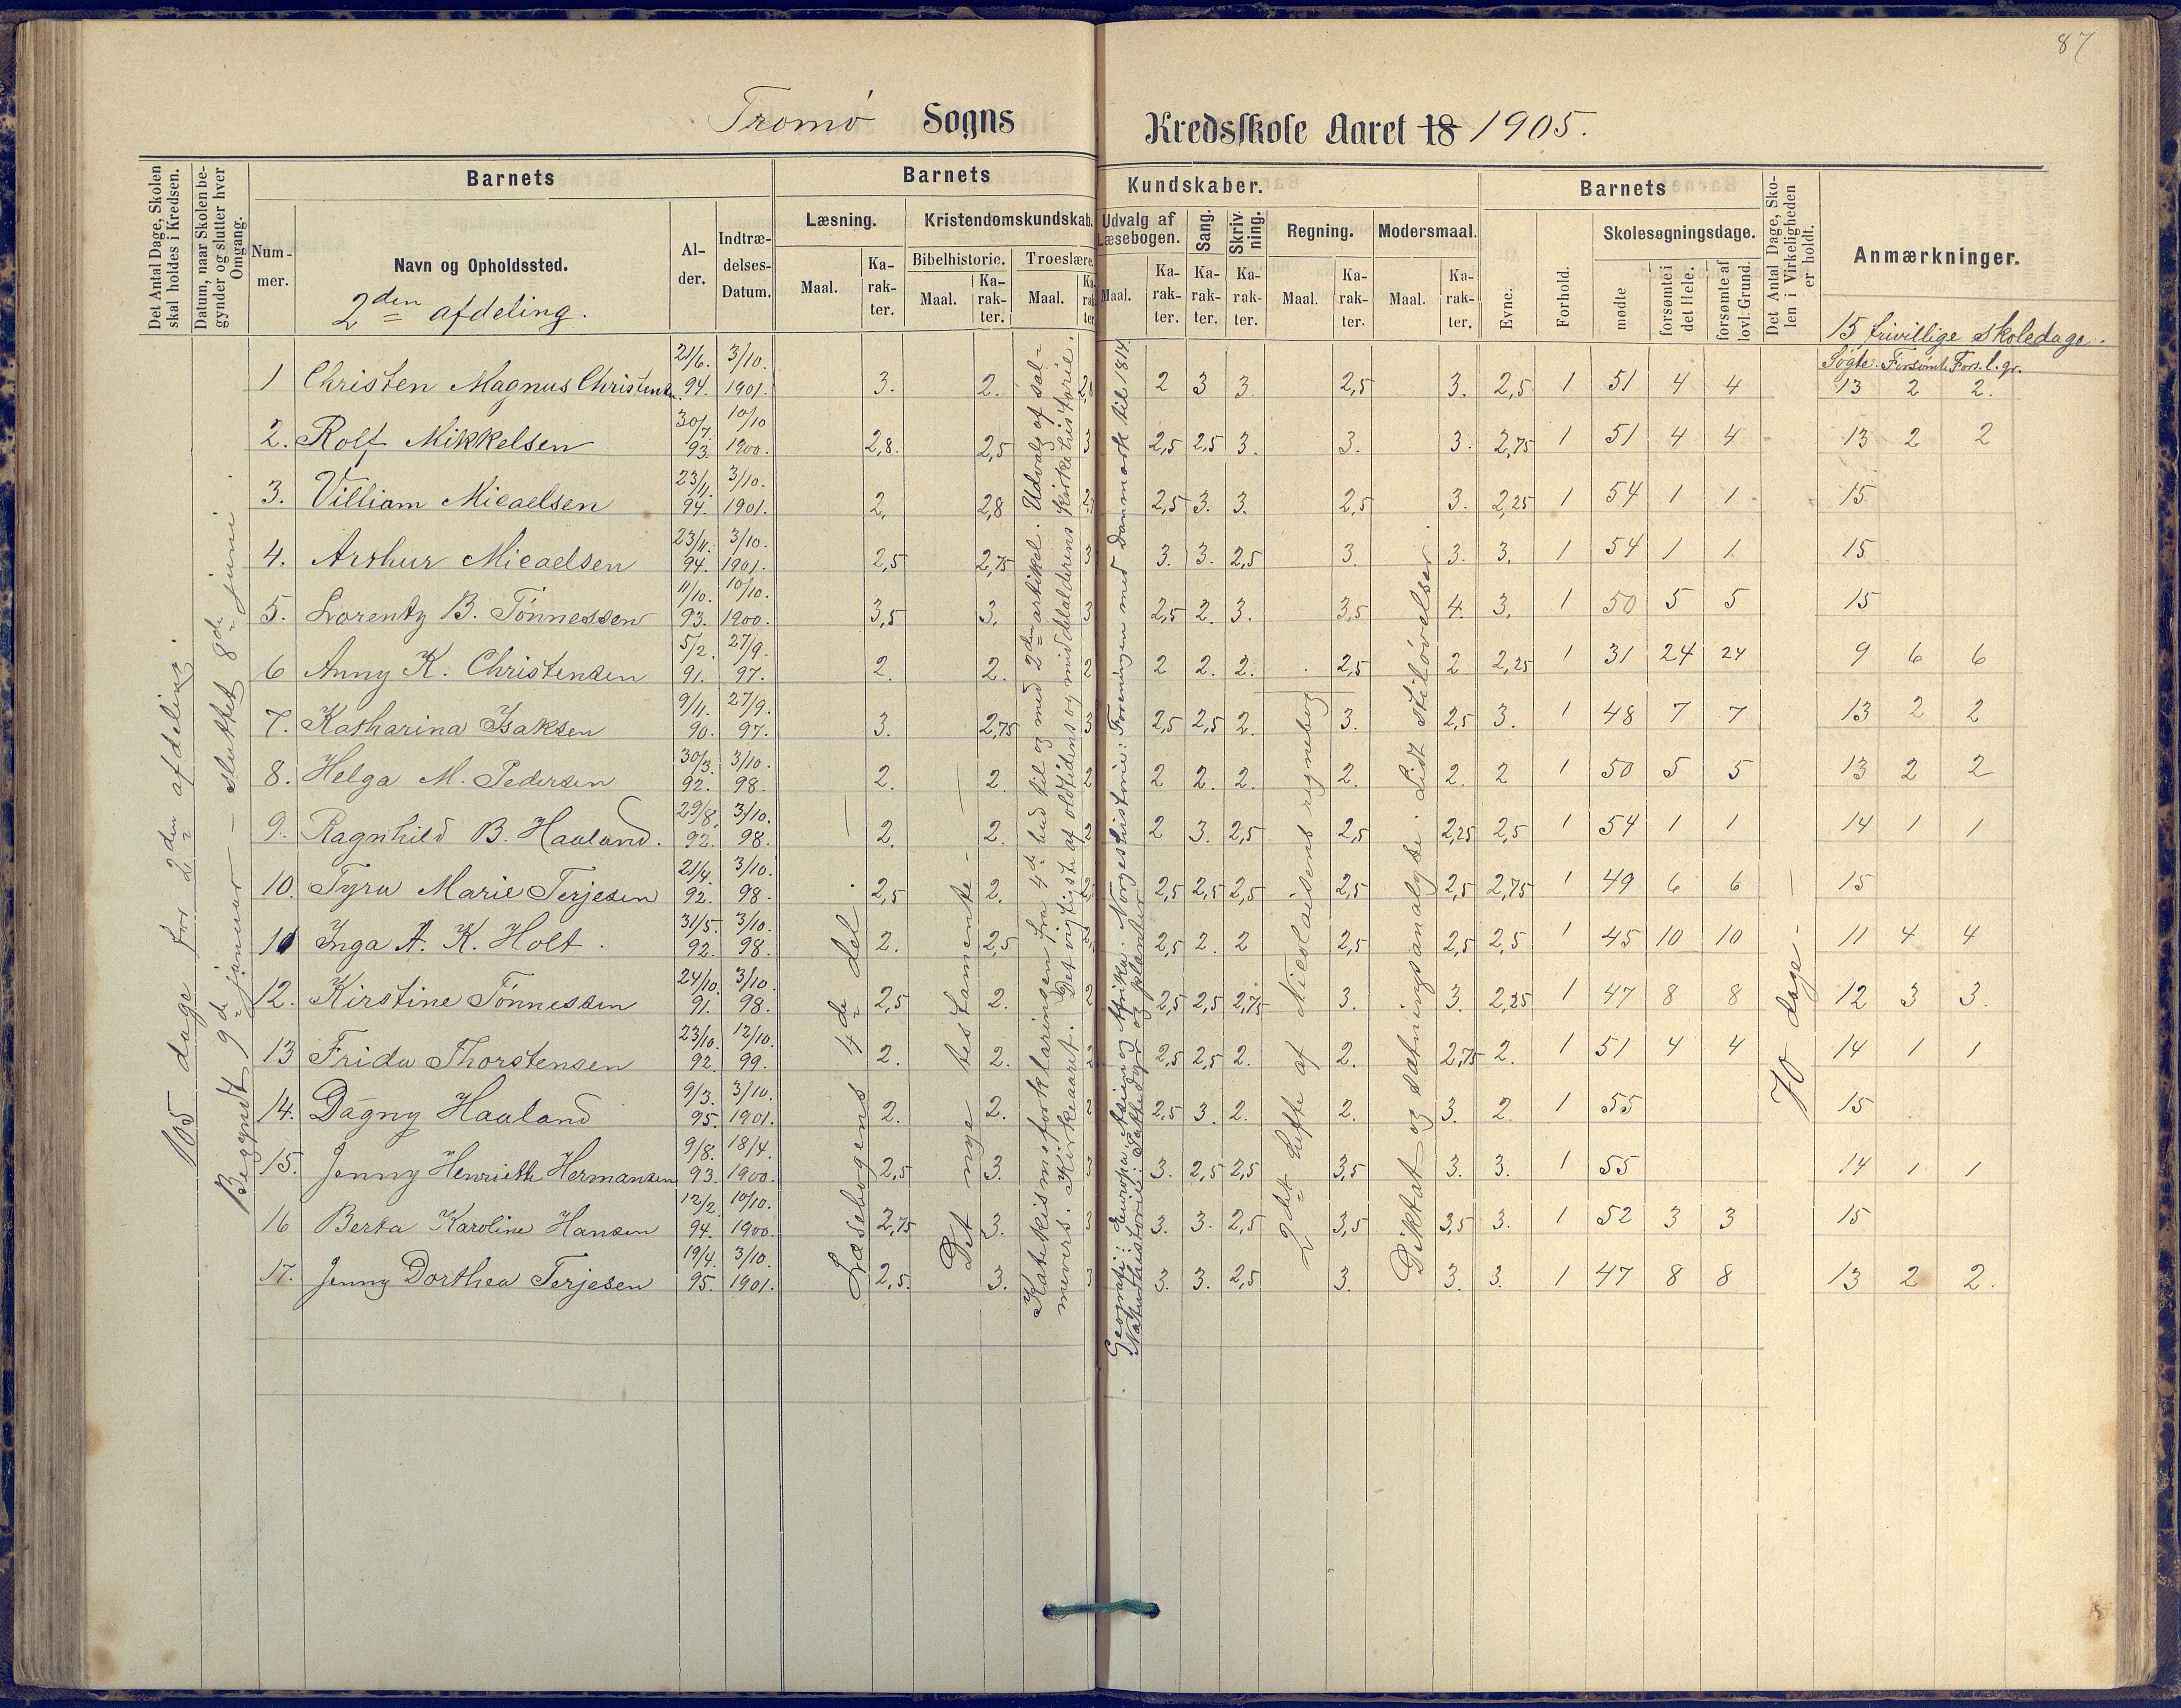 87
Tromö Sogns Kredsskole Aaret 18 1905.
Det Antal Dage, Skolen skal holdes i Kredsen.
Datum, naar Skolen begynder og slutter hver Omgang.
Barnets
Nummer.
Navn og Opholdssted.
2den afdeling.
Alder.
Indtrædelses-Datum.
Barnets Kundskaber.
Læsning.
Maal. Karakter.
Kristendomskundskab.
Bibelhistorie. Troeslære.
Maal. Karakter. Maal. Karakter.
Udvalg af Læsebogen. Sang. Skrivning. Regning. Modersmaal.
Maal. Karakter. Karakter. Karakter. Maal. Karakter. Maal. Karakter.
Barnets
Evne. Forhold. Skolesøgningsdage.
mødte forsømte i det Hele. forsømte af lovl. Grund.
Det Antal Dage, Skolen i Virkeligheden er holdt.
Anmærkninger.
15 frivillige skoledage.
Søgte. Forsømte Fors. l. gr.
105 dage for 2den afdeling.
Begyndt 9de januar – sluttet 8de juni.
Læsebogens 4de del
Det nye testamente
Katekismeforklaringen fra 4de bud til og med 2den artikel. Udvalg af salmevers. Kirkeaaret. Det vigtigste af oldtidens og middelalderens kirkehistorie.
Geografi: Europa, Asien og Afrika. Norgeshistorie: Foreningen med Danmark til 1814.
Naturhistorie: Pattedyr og planter
2det hefte af Nicolaisens regnebog
Diktat og sætningsanalyse. Lidt stiløvelser.
70 dage
1 Christen Magnus Christensen. 21/6. 94. 3/10. 1901. 3. 2. 2,8 2 3 3. 2,5 3. 2,5 1 51 4 4 13 2 2.
2. Rolf Mikkelsen 30/7. 93. 10/10 1900. 2,8. 2,5 3 2,5 2,5 3. 3. 3. 2,75 1 51 4 4 13 2 2
3. Villiam Micaelsen 23/11. 94. 3/10. 1901. 2. 2,8 2,5 3. 3. 2,5 3. 2,25 1 54 1 1 15
4. Arthur Micaelsen 23/11. 94. 3/10. 1901. 2,5 2,75 3 3. 3. 2,5 3. 3. 3. 1 54 1 1 15
5. Lorentz B. Tönnessen 11/10. 93. 10/10. 1900. 3,5 3. 3 2,5 2. 3. 3,5 4. 3. 1 50 5 5 15
6 Anny K. Christensen 5/2. 91. 27/9. 97. 2. 2. 2 2 2. 2. 2,5 2 2,25 1 31 24 24 9 6 6
7. Katharina Isaksen 9/11. 90. 27/9. 97. 3. 2,75 3 2,5 2,5 2. 3. 2,5 3. 1 48 7 7 13 2 2
8. Helga M. Pedersen 30/3. 92. 3/10. 98. 2. 2. 2 2 2. 2. 2. 2. 2 1 50 5 5 13 2 2
9. Ragnhild B. Haaland. 29/8. 92. 3/10. 98. 2. 2. 2 2 3. 2,5 2,5 2,25 2,5 1 54 1 1 14 1 1
10. Tyra Marie Terjesen 21/4. 92. 3/10. 98. 2,5 2. 2,5 2,5 2,5 2,5 2,5 2,75 1 49 6 6 15
11 Inga A. K. Holt. 31/5. 92. 3/10. 98. 2. 2,5 2,5 2. 2 2,5 2,5 2,5 1 45 10 10 11 4 4
12. Kirstine Tönnessen 24/10. 91. 3/10. 98. 2,5 2. 2 2,5 2,5 2,75 3. 3. 2,25 1 47 8 8 12 3 3.
13 Frida Thorstensen 23/10. 92. 12/10. 99. 2. 2. 2 2,5 2,5 2. 2. 2,75 2. 1 51 4 4 14 1 1
14. Dagny Haaland 9/3. 95. 3/10. 1901. 2. 2. 2 2,5 3. 2. 2. 3. 2. 1 55 15
15. Jenny Henriette Hermansen 9/8. 93. 18/4. 1900. 2,5 3. 3 3. 2,5 2,5 3,5 3. 3. 1 55 14 1 1
16 Berta Karoline Hansen 12/2. 94. 10/10. 1900. 2,75 3. 3 3. 3. 2,5 3,5 3,5 3. 1 52 3 3 15
17. Jenny Dorthea Terjesen 19/4. 95. 3/10. 1901. 2,5. 3. 3 3. 3. 2,5 3. 3. 3. 1 47 8 8 13 2 2.